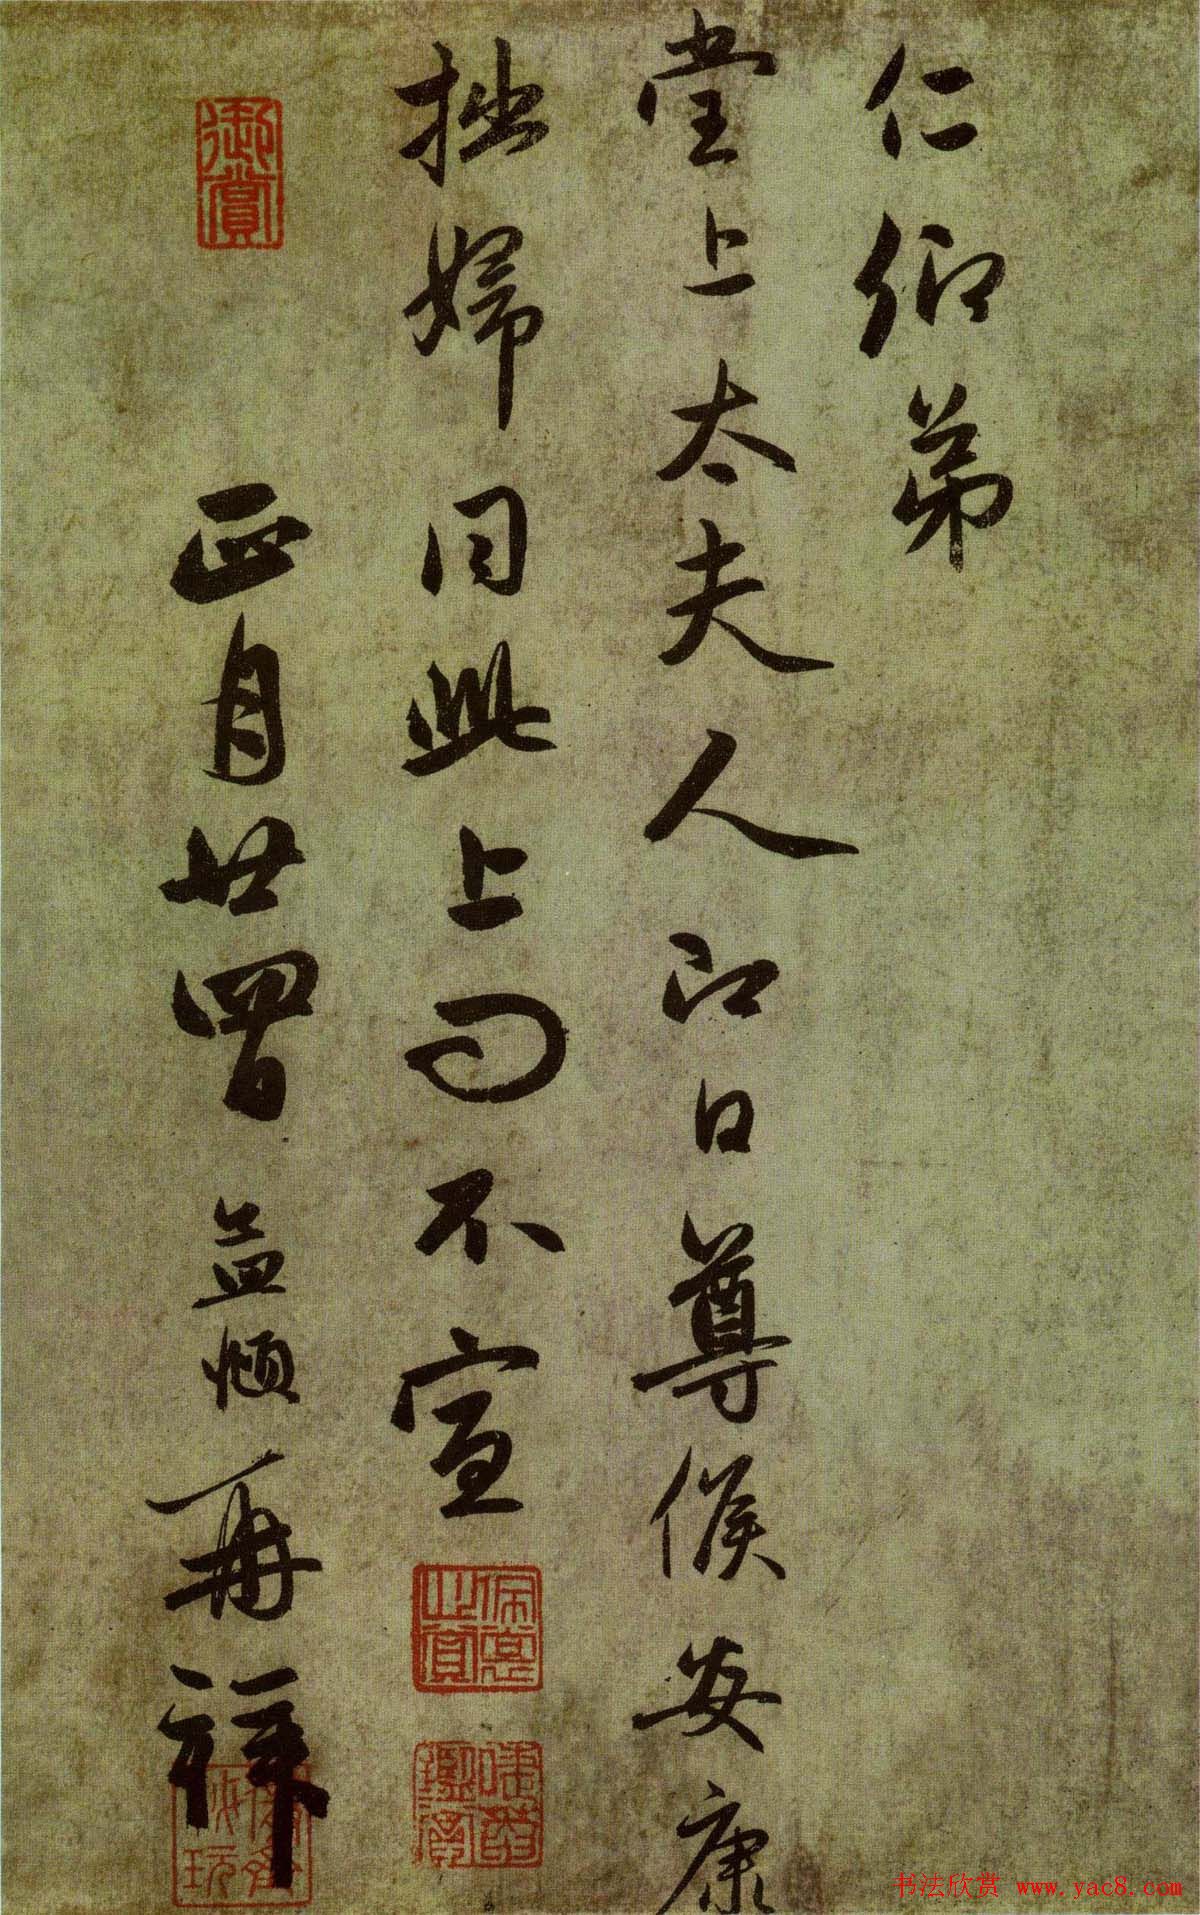 仁仰弟
堂上太夫人即日尊候安康
拙婦同此上問不宣
正月廿四日 益 再拜
御賞
书法欣赏 www.yac8.com